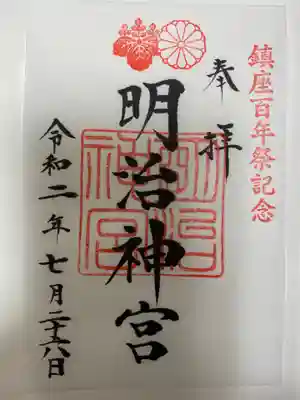 鎮座百年祭記念
奉拝
明治神宮
明治
神宮
令和二年七月二十六日